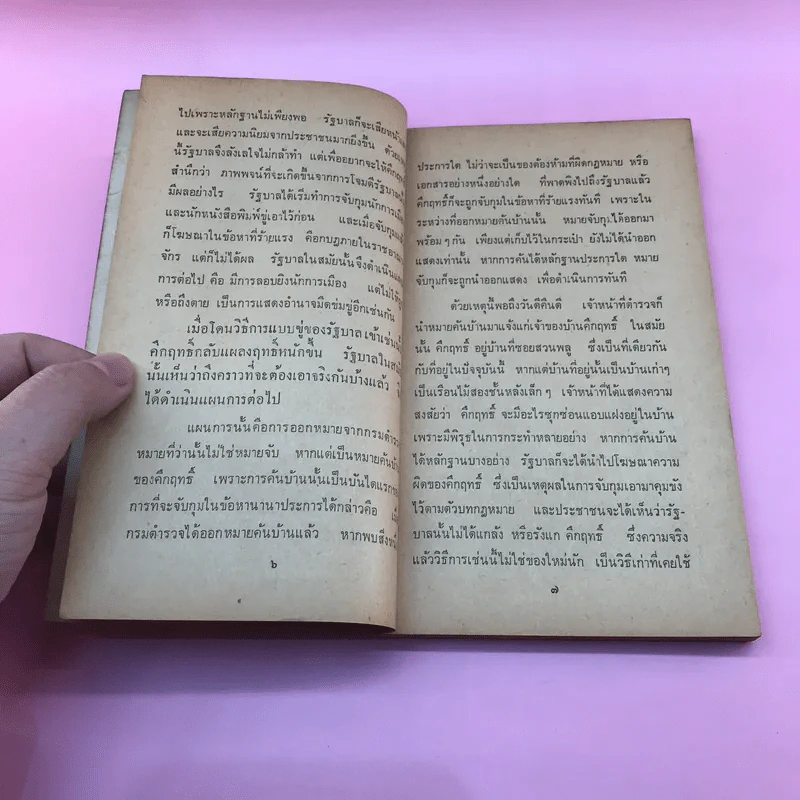 ไปเพราะหลักฐานไม่เพียงพอ รัฐบาลก็จะเสียหน้า
และจะเสียความนิยมจากประชาชนมากยิ่งขึ้น
นี้รัฐบาลจึงลังเลใจไม่กล้าทำ แต่เพื่ออยากจะให้คึกฤทธิ์
สำนึกว่า ภาพพจน์ที่จะเกิดขึ้นจากการโจมตีรัฐบาลนั้น
มีผลอย่างไร รัฐบาลได้เริ่มทำการจับกุมนักการเมือง
และนักหนังสือพิมพ์ขู่เอาไว้ก่อน และเมื่อจับกุมแล้ว
ก็โฆษณาในข้อหาที่ร้ายแรง คือกบฏภายในราชอาณา
จักร แต่ก็ไม่ได้ผล รัฐบาลในสมัยนั้นจึงดำเนินแผน
การต่อไป คือ มีการลอบยิงนักการเมือง แต่ไม่ให้
หรือถึงตาย เป็นการแสดงอำนาจมืดข่มขู่อีกเช่นกัน
เมื่อโดนวิธีการแบบขู่ของรัฐบาลเข้าเช่นนั้น
คึกฤทธิ์กลับแผลงฤทธิ์หนักขึ้น รัฐบาลในสมัย
นั้นเห็นว่าถึงคราวที่จะต้องเอาจริงกันบ้างแล้ว
ได้ดำเนินแผนการต่อไป
แผนการนั้นคือการออกหมายจากกรมตำรวจ
หมายที่ว่านั้นไม่ใช่หมายจับ หากแต่เป็นหมายค้นบ้าน
ของคึกฤทธิ์ เพราะการค้นบ้านนั้นเป็นบันไดแรกของ
การที่จะจับกุมในข้อหานานาประการได้กล่าวคือ เมื่อ
กรมตำรวจได้ออกหมายค้นบ้านแล้ว หากพบสิ่งหนึ่ง
๖
ประการใด ไม่ว่าจะเป็นของต้องห้ามที่ผิดกฎหมาย หรือ
เอกสารอย่างหนึ่งอย่างใด ที่พาดพิงไปถึงรัฐบาลแล้ว
คึกฤทธิ์ก็จะถูกจับกุมในข้อหาที่ร้ายแรงทันที เพราะใน
ระหว่างที่ออกหมายค้นบ้านนั้น หมายจับกุมได้ออกมา
พร้อมๆ กัน เพียงแต่เก็บไว้ในกระเป๋า ยังไม่ได้นำออก
แสดงเท่านั้น หากการค้นได้หลักฐานประการใด หมาย
จับกุมก็จะถูกนำออกแสดง เพื่อดำเนินการทันที
ด้วยเหตุนี้พอถึงวันดีคืนดี เจ้าหน้าที่ตำรวจก็
นำหมายค้นบ้านมาแจ้งแก่เจ้าของบ้านคึกฤทธิ์ ในสมัย
นั้น คึกฤทธิ์ อยู่บ้านที่ซอยสวนพลู ซึ่งเป็นที่เดียวกัน
กับที่อยู่ในปัจจุบันนี้ หากแต่บ้านที่อยู่นั้นเป็นบ้านเก่าๆ
เป็นเรือนไม้สองชั้นหลังเล็กๆ เจ้าหน้าที่ได้แสดงความ
สงสัยว่า คึกฤทธิ์ จะมีอะไรซุกซ่อนแอบแฝงอยู่ในบ้าน
เพราะมีพิรุธในการกระทำหลายอย่าง หากการค้นบ้าน
ได้หลักฐานบางอย่าง รัฐบาลก็จะได้นำไปโฆษณาความ
ผิดของคึกฤทธิ์ ซึ่งเป็นเหตุผลในการจับกุมเอามาคุมขัง
ไว้ตามตัวบทกฎหมาย และประชาชนจะได้เห็นว่ารัฐ-
บาลนั้นไม่ได้แกล้ง หรือรังแก คึกฤทธิ์ ซึ่งความจริง
แล้ววิธีการเช่นนี้ไม่ใช่ของใหม่นัก เป็นวิธีเก่าที่เคยใช้
๗